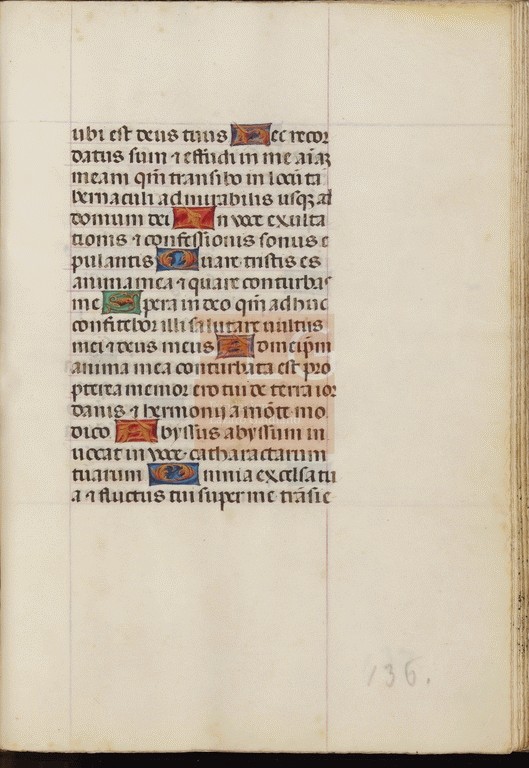 ubi est deus tuus Hec recor
datus sum ⁊ effudi in me aīaȝ
meam qm̄ transibo in locū ta
bernaculi admirabilis usqȝ ad
domum dei In voce exulta
tionis ⁊ confessionis sonus e
pulantis Quare tristis es
anima mea ⁊ quare conturbas
me Spera in deo qm̄ adhuc
confitebor illi salutare uultus
mei ⁊ deus meus Ad me ip̄m
anima mea conturbata est pro
pterea memor ero tui de terra ior
danis ⁊ hermonij a mōte mo
dico Abyssus abyssum in
uocat in voce catharactarum
tuarum Omnia excelsa tu
a ⁊ fluctus tui super me trāsie
136.